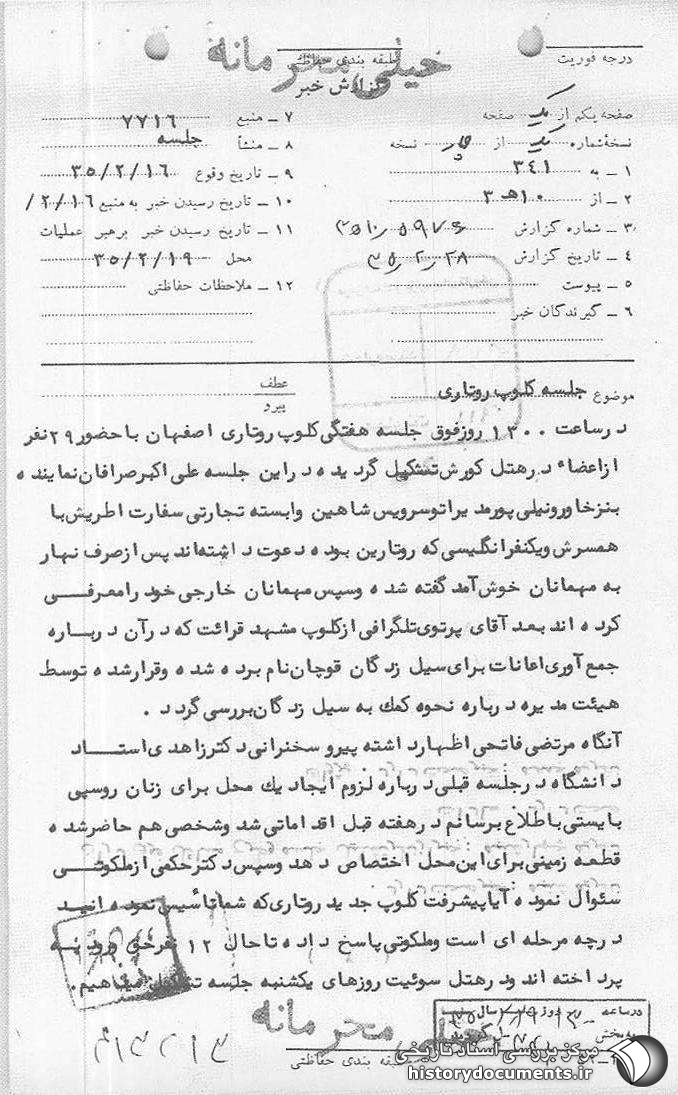 خیلی محرمانه
درجه فوریت
طبقه بندی حفاظتی
گزارش خبر
صفحه یکم از یک صفحه
نسخه شماره یک از چهار نسخه
۱ ـ به ۳۴۱
۲ ـ از ۱۰ هـ ۳
۳ ـ شماره گزارش
۴ ـ تاریخ گزارش ۳۵٫۲٫۲۸
۵ ـ پیوست
۶ ـ گیرندگان خبر
۷ ـ منبع ۷۷۱۶
۸ ـ منشأ جلسه
۹ ـ تاریخ وقوع ۳۵/۲/۱۶
۱۰ ـ تاریخ رسیدن خبر به منبع ۲/۱۶/
۱۱ ـ تاریخ رسیدن خبر برهبر عملیات
محل ۳۵/۲/۱۹
۱۲ ـ ملاحظات حفاظتی
موضوع جلسه کلوپ روتاری
عطف
پیرو
درساعت ۱۳۰۰ روزفوق جلسه هفتگی کلوپ روتاری اصفهان با حضور ۲۹ نفر
ازاعضاء درهتل کورش تشکیل گردیده دراین جلسه علی اکبرصرافان نماینده
بنزخاورونیلی پورمدیراتوسرویس شاهین وابسته تجارتی سفارت اطریش با
همسرش ویکنفرانگلیسی که روتارین بوده دعوت داشته اند پس ازصرف نهار
به مهمانان خوش آمد گفته شده وسپس مهمانان خارجی خود رامعرفی
کرده اند بعد آقای پرتوی تلگرافی ازکلوپ مشهد قرائت که درآن درباره
جمع آوری اعانات برای سیل زدگان قوچان نام برده شده وقرارشده توسط
هیئت مدیره درباره نحوه کمک به سیل زدگان بررسی گردد .
آنگاه مرتضی فاتحی اظهارداشته پیرو سخنرانی دکترزاهدی استاد
دانشگاه درجلسه قبلی درباره لزوم ایجاد یک محل برای زنان روسپی
بایستی باطلاع برسانم درهفته قبل اقداماتی شد وشخصی هم حاضرشده
قطعه زمینی برای این محل اختصاص دهد وسپس دکترحکمی ازملکوتی
سئوال نموده آیا پیشرفت کلوپ جدید روتاری که شما تأسیس نموده انید
درچه مرحله ای است وملکوتی پاسخ داده تاحال ۱۲ نفرحق ورود یه
پرداخته اند ودرهتل سوئیت روزهای یکشنبه جلسه تشکیل میدهیم.
خیلی محرمانه
طبقه بندی حفاظتی
درساعه روز سال
مرکز بررسی اسناد تاریخی
historydocuments.ir